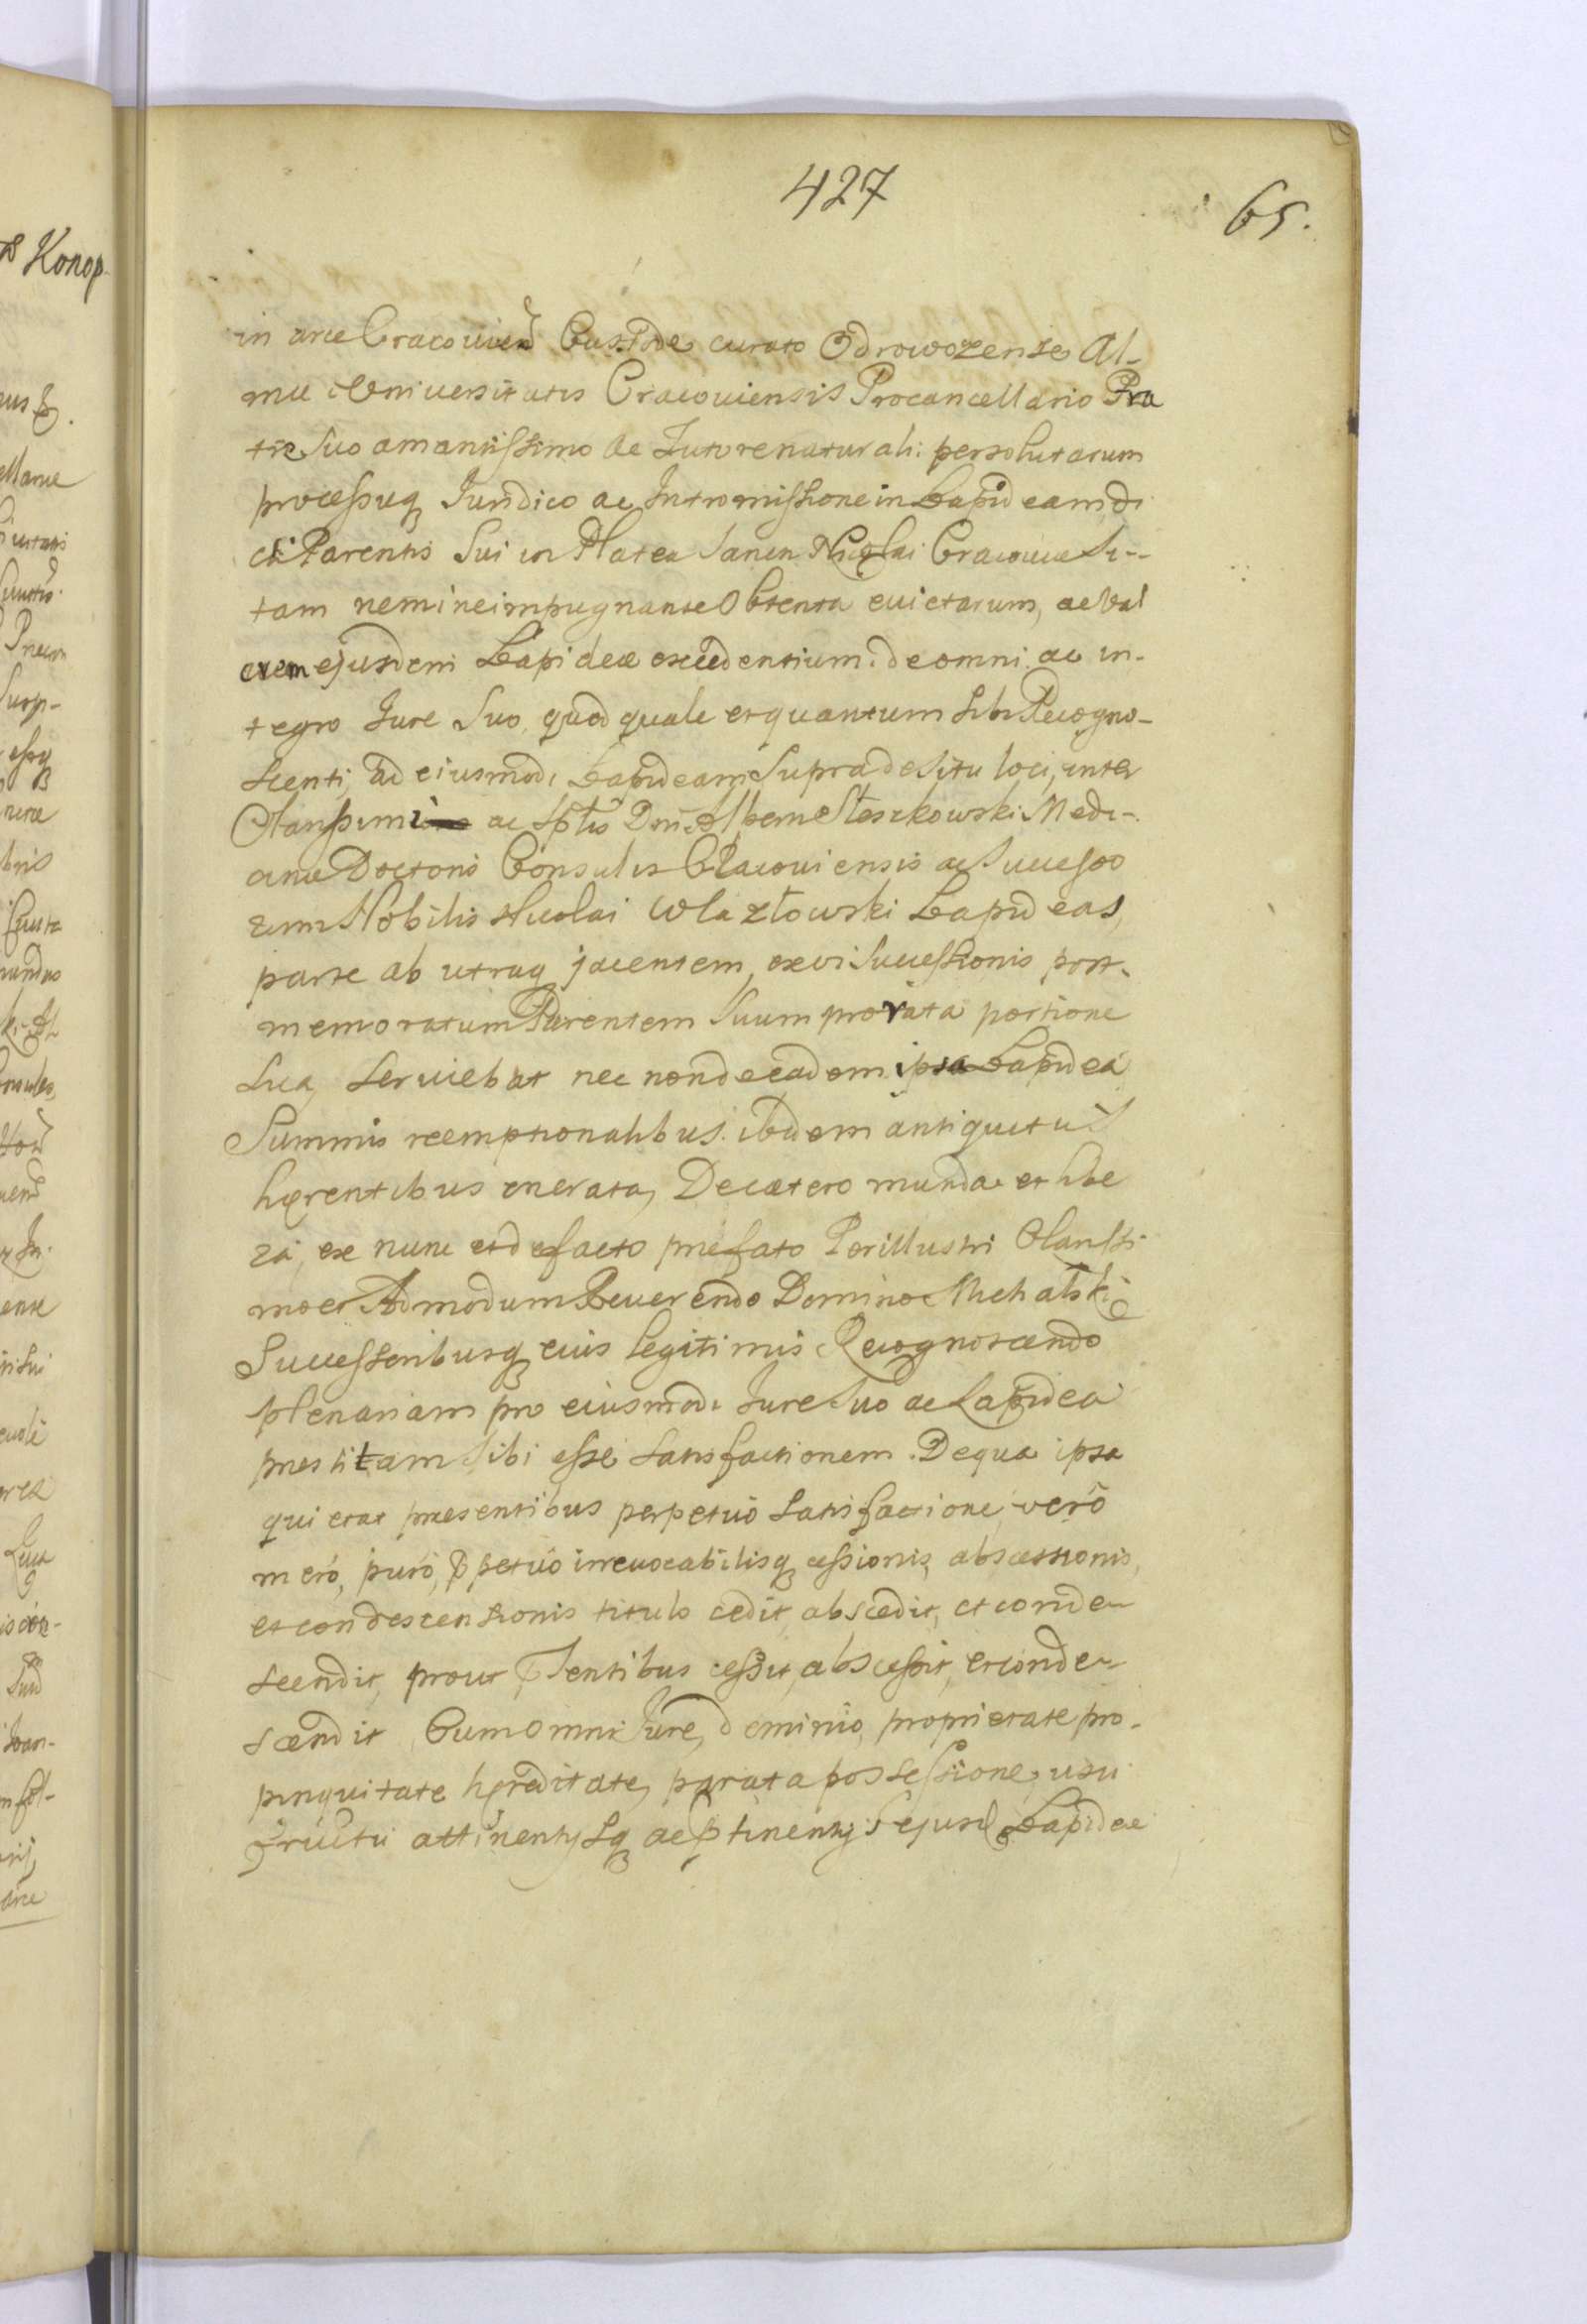 427
65.
in arce Cracovien Custode curato Odrowozense Al-
mae Universitatis Cracoviensis Procancellario Fra
tre suo amantissimo ac Tutore naturali persolutarum
processuq Juridico ac Intromissione in Lapideam di
cti Parentis Sui in Platea Sancti Nicolai Cracoviae Si-
tam nemine impugnante Obtenta evictarum, ac Val
orem ejusdem Lapideae excedentium. de omni ac in-
tegro Jure Suo, quod quale et quantum sibi Recogno-
scenti, ad eiusmodi Lapideam Supra de situ loci, inter
Clarissimi ac Sptis Dni Alberti Sleszkowski Medi-
cinae Doctoris Consulis Cracoviensis ac Successo
rum Nobilis Nicolai Wlazłowski Lapideas,
parte ab utraq jacentem, ex vi Successionis post
memoratum Parentem Suum pro rata portione
sua serviebat nec non de eadem ipsa Lapidea
Summis reemptionalibus ibidem antiquitus
haerentibus onerata, De caetero munda et libe
ra, ex nunc et de facto praefato Perillustri Clarissi
mo et Admodum Reverendo Domino Michalski
Successoribusq eius legitimis Recognoscendo
plenariam pro eiusmodi Jure Suo ac Lapidea
praestitam sibi esse satisfactionem. De qua ipsa
quietat praesentibus perpetuo Satisfactione vero
mero, puro, ppetuo irrevocabilisq cessionis, abscessionis,
et condescensionis titulo cedit, abscedit, et conde-
scendit, prout psentibus cessit, abscessit, et conde-
scendit Cum omni Jure, dominio, proprietate pro-
pinquitate haereditate, parata possessione, usu
fructu attinentijsq ac ptinentijs ejusd Lapideae